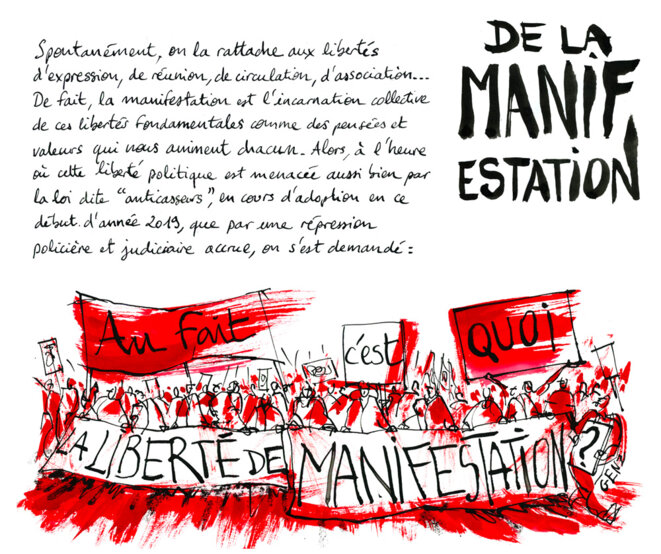 DE LA
MANIF
ESTATION
Spontanément, on la rattache aux libertés
d'expression, de réunion, de circulation, d'association...
De fait, la manifestation est l'incarnation collective
de ces libertés fondamentales comme des pensées et
valeurs qui nous animent chacun. Alors, à l'heure
où cette liberté politique est menacée aussi bien par
la loi dite "anticasseurs", en cours d'adoption en ce
début d'année 2019, que par une répression
policière et judiciaire accrue, on s'est demandé :
Au fait
c'est
QUOI
LA LIBERTÉ DE
MANIFESTATION
?
GEN